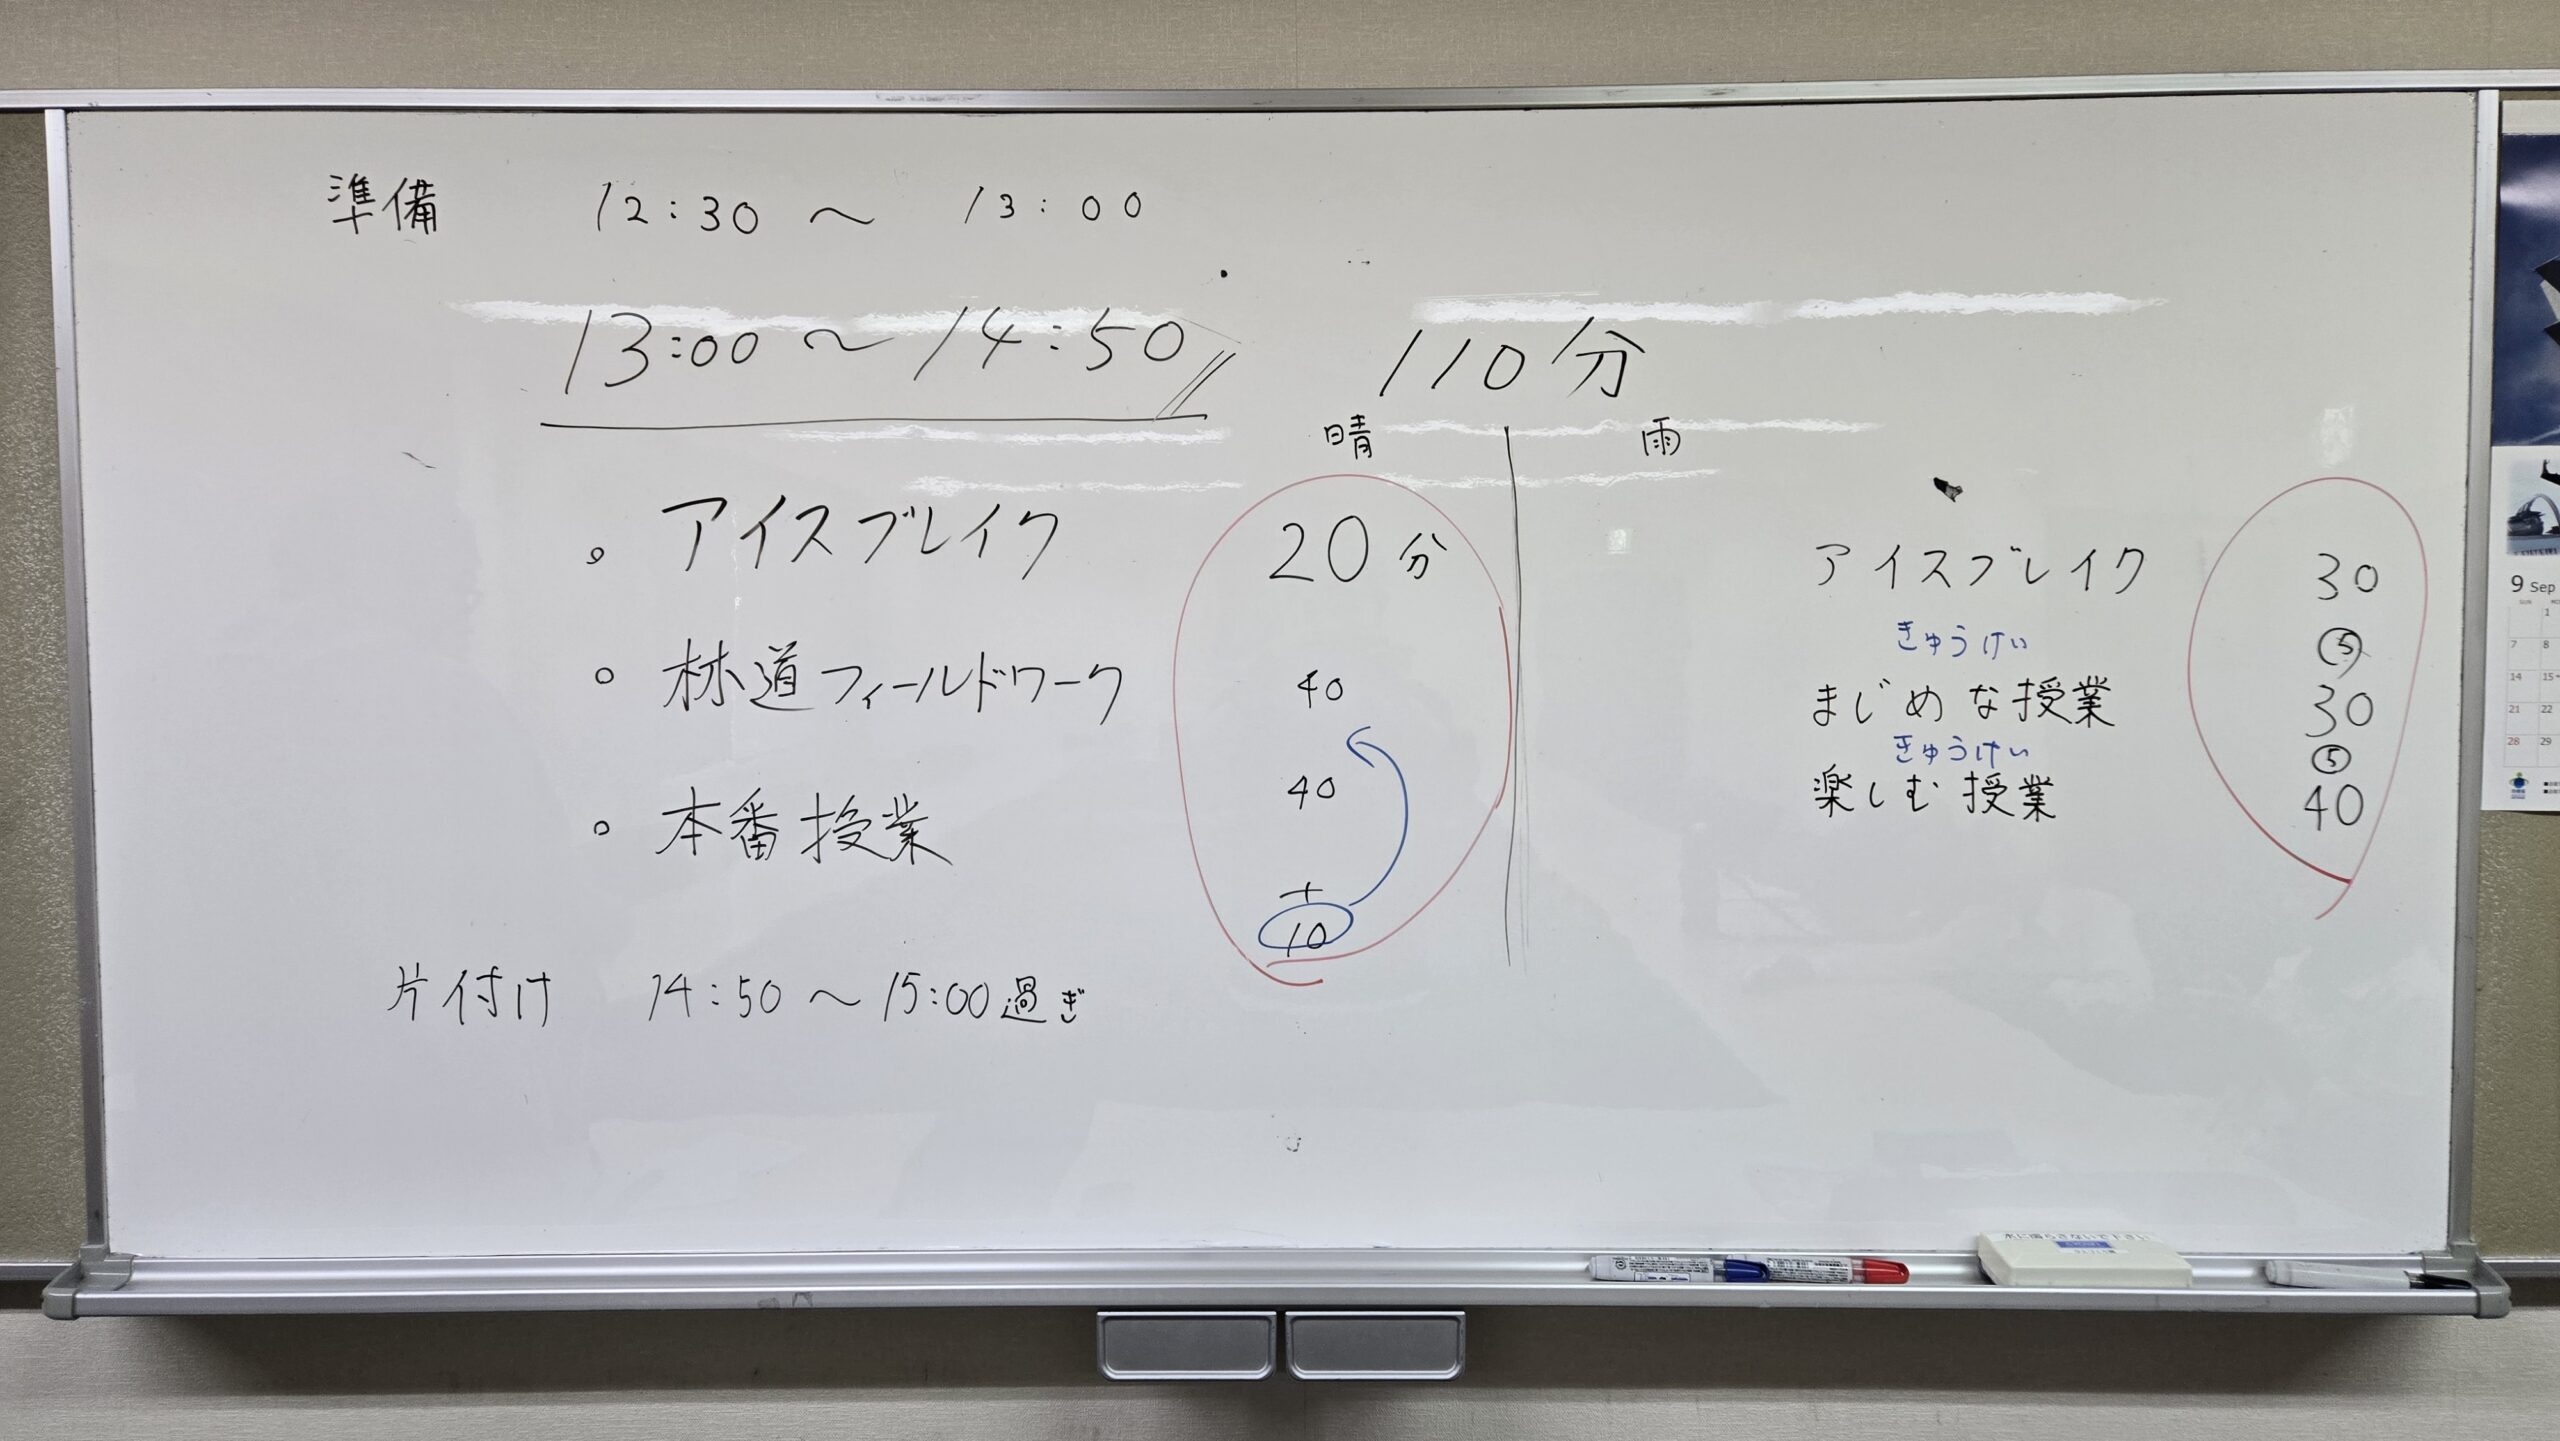 準備 12:30 ～ 13:00
13:00 ～ 14:50 110分
晴 雨
。アイスブレイク 20分
。林道フィールドワーク 40
40
。本番授業
+
10
片付け 14:50 ～ 15:00過ぎ
アイスブレイク 30
きゅうけい ⑤
まじめな授業 30
きゅうけい ⑤
楽しむ授業 40
9 Sep
SUN
1
7 8
14 15
21 22
28 29
水に濡らさないで下さい